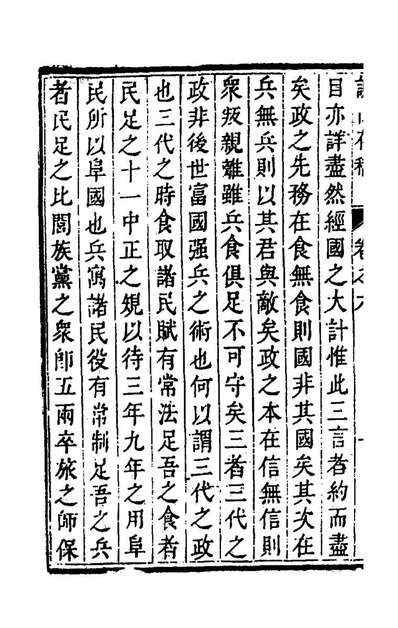 目亦詳盡然經國之大計惟此三言者約而盡
矣政之先務在食無食則國非其國矣其次在
兵無兵則以其君與敵矣政之本在信無信則
衆叛親離雖兵食俱足不可守矣三者三代之
政非後世富國强兵之術也何以謂三代之政
也三代之時食取諸民賦有常法足吾之食者
民足之十一中正之規以待三年九年之用阜
民所以阜國也兵寓諸民役有常制足吾之兵
者民足之比閭族黨之衆卽五兩卒旅之師保